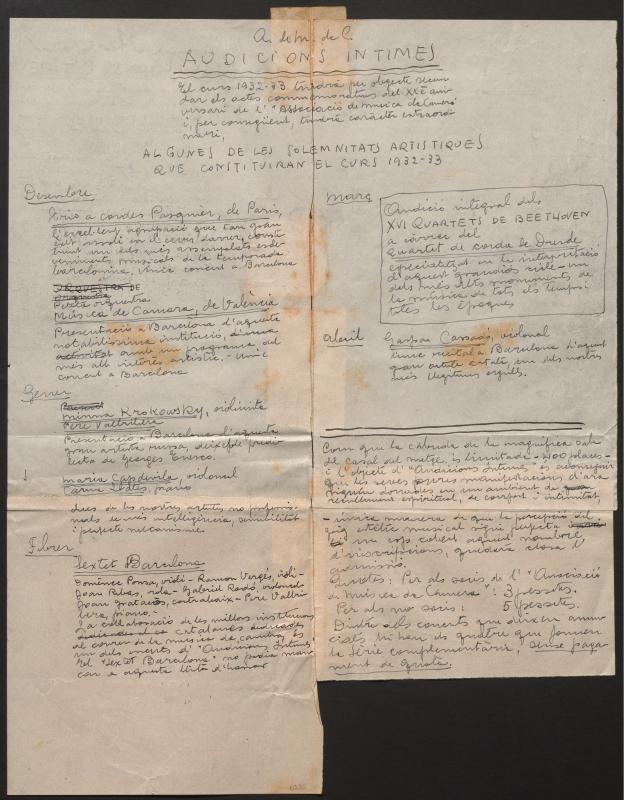 A. de M. de C.
AUDICIONS INTIMES
El curs 1932-33 tindrà per objecte secun
dar els actes commemoratius del XXè ani-
versari de l'"Associació de Musica de Camera"
i, per consegüent, tindrà caràcter extraordi
nari.
ALGUNES DE LES SOLEMNITATS ARTISTIQUES
QUE CONSTITUIRAN EL CURS 1932-33
Desembre
Trio a cordes Pasquier, de Paris,
l'excel·lent agrupació que tan gran
èxit assolí en el curs darrer, consti
tuint un dels més assenyalats esde-
veniments musicals de la temporada
barcelonina. Unic concert a Barcelona
ORQUESTRA DE
orquestra
Petita orquestra
Música de Camara, de València
Presentació a Barcelona d'aquesta
notabilíssima institució, d'una
activitat amb un programa del
més alt interès artístic. - Unic
concert a Barcelona
Gener
Present
Minna Krokowsky, violinista
Pere Vallribera
Presentació a Barcelona d'aquesta
gran artista russa, deixeble predi
lecta de Georges Enesco.
↓ Maria Capdevila, violoncel
piano
dues de les nostres artistes
més intelligència, sensibilitat
i perfecte mecanisme.
Febrer
Sextet Barcelona
Domènec Ponsa, violí - Ramon Vergés, violí -
Joan Ribas, viola - Gabriel Rodó, violoncel
Joan Gratacòs, contrabaix - Pere Vallri
bera, piano.
La collaboració de les millors institucions
catalanes dedicades
al conreu de la música de cambra, és
un dels encerts d'"Audicions Intimes"
El "Sextet Barcelona" no podia man
car a aquesta llista d'honor
Març
Audició integral dels
XVI QUARTETS DE BEETHOVEN
a càrrec del
Quartet de corda de Dresde
especialitzat en la interpretació
d'aquest grandiós cicle - un
dels més alts monuments de
la música de tots els temps i
totes les èpoques
Abril
Gaspar Cassadó, violoncel
Unic recital a Barcelona d'aquest
gran artista català, un dels nostres
més llegítims orgulls.
Com que la cabuda de la magnifica sala
del Casal del metge, és limitada - 400 places -
i l'objecte d'"Audicions Intimes" és aconseguir
que les seves manifestacions d'art
siguin donades en un ambient de
recolliment espiritual, de confort i intimitat,
- unica manera de que la percepció del
goig musical sigui perfecta
un cop cobert aquest nombre
d'inscripcions, quedarà closa l'
admissió.
Quotes: Per als socis de l'"Associació
de Música de Camera": 3 pessetes.
Per als no socis: 5 pessetes.
Dintre els concerts que deixem anun
ciats hi han els quatre que formen
la sèrie complementària, sense paga-
ment de quota.